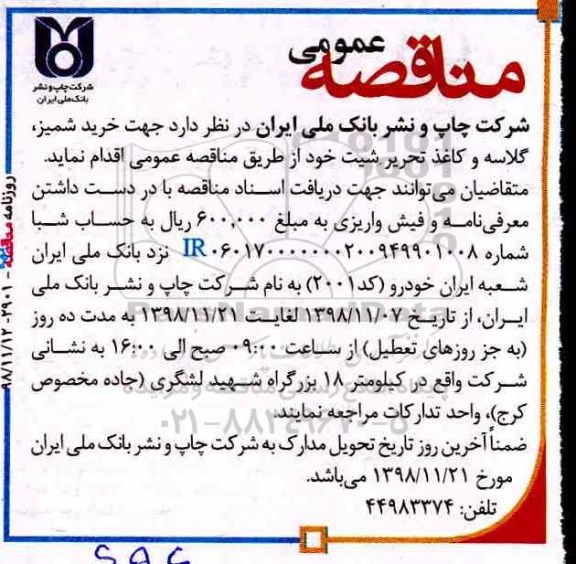 مناقصه عمومی
شرکت چاپ و نشر
بانک ملی ایران
شرکت چاپ و نشر بانک ملی ایران در نظر دارد جهت خرید شمیز،
گلاسه و کاغذ تحریر شیت خود از طریق مناقصه عمومی اقدام نماید.
متقاضیان می‌توانند جهت دریافت اسناد مناقصه با در دست داشتن
معرفی‌نامه و فیش واریزی به مبلغ ۶۰۰,۰۰۰ ریال به حساب شبا
شماره IR۰۶۰۱۷۰۰۰۰۰۰۰۲۰۰۹۴۹۹۰۱۰۰۸ نزد بانک ملی ایران
شعبه ایران خودرو (کد۲۰۰۱) به نام شرکت چاپ و نشر بانک ملی
ایران، از تاریخ ۱۳۹۸/۱۱/۰۷ لغایت ۱۳۹۸/۱۱/۲۱ به مدت ده روز
(به جز روزهای تعطیل) از ساعت ۰۹:۰۰ صبح الی ۱۶:۰۰ به نشانی
شرکت واقع در کیلومتر ۱۸ بزرگراه شهید لشگری (جاده مخصوص
کرج)، واحد تدارکات مراجعه نمایند.
۰۲۱-۸۸۳۴۹۶۷۰-۵
ضمناً آخرین روز تاریخ تحویل مدارک به شرکت چاپ و نشر بانک ملی ایران
مورخ ۱۳۹۸/۱۱/۲۱ می‌باشد.
تلفن: ۴۴۹۸۳۳۷۴
روزنامه مناقصه - ۲۹۰۱ - ۹۸/۱۱/۱۲